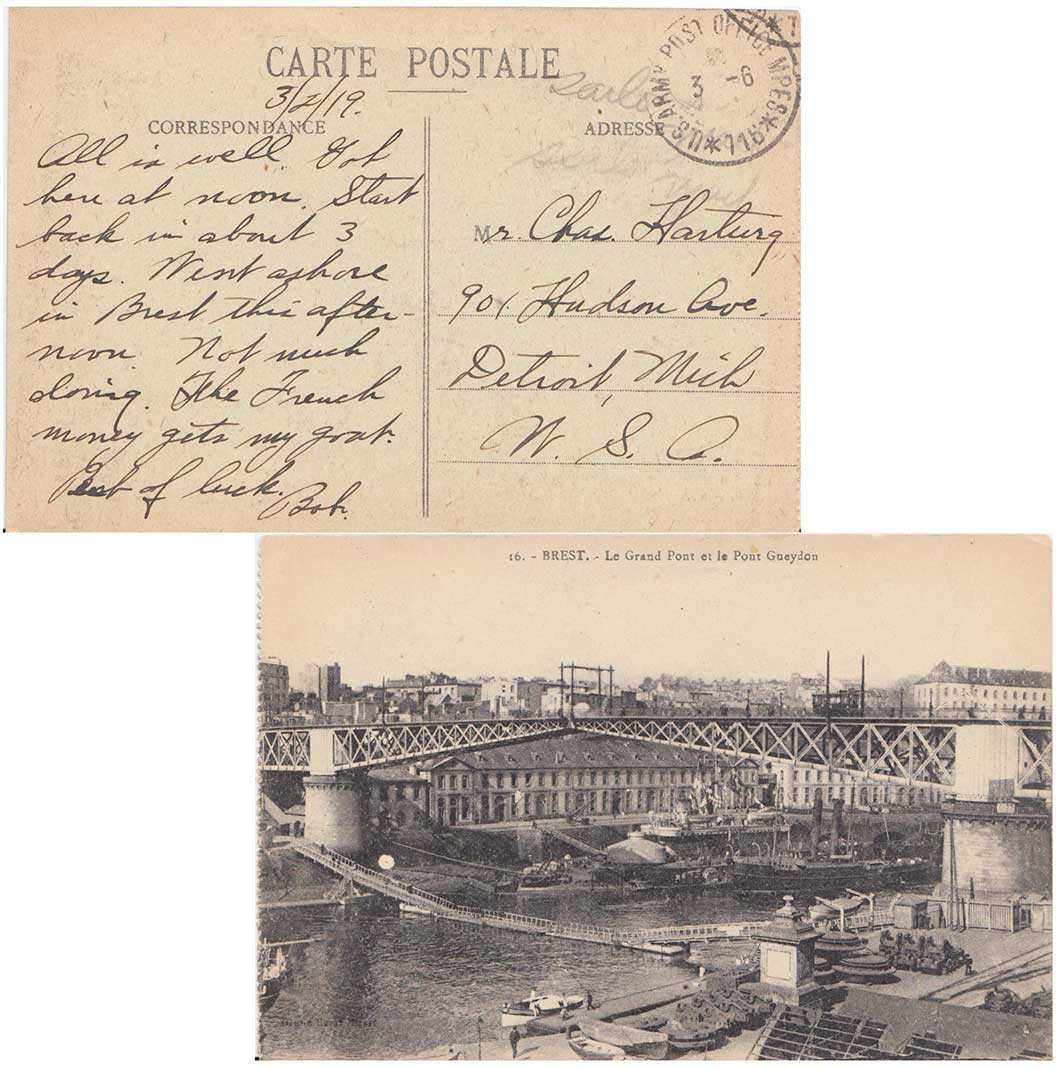 CARTE POSTALE
3/2/19.
CORRESPONDANCE
All is well. Got
here at noon. Start
back in about 3
days. Went ashore
in Brest this after-
noon. Not much
doing. The French
money gets my goat.
Best of luck.
Bob.
ADRESSE
U.S. ARMY POST OFFICE MPES
3 -6
*716*
Mr. Chas. Harturg
901 Hudson Ave.
Detroit, Mich
U. S. A.
16. - BREST. - Le Grand Pont et le Pont Gueydon